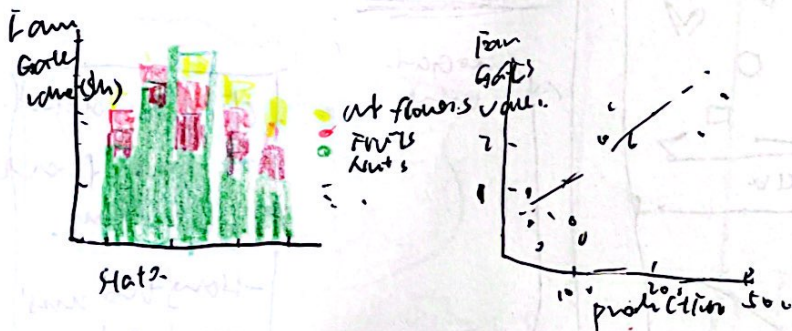 Farm
Gate
value(sh)
cut flowers
Fruits
Nuts
State
Farm
Gates
value.
2
1
100
200
500
production